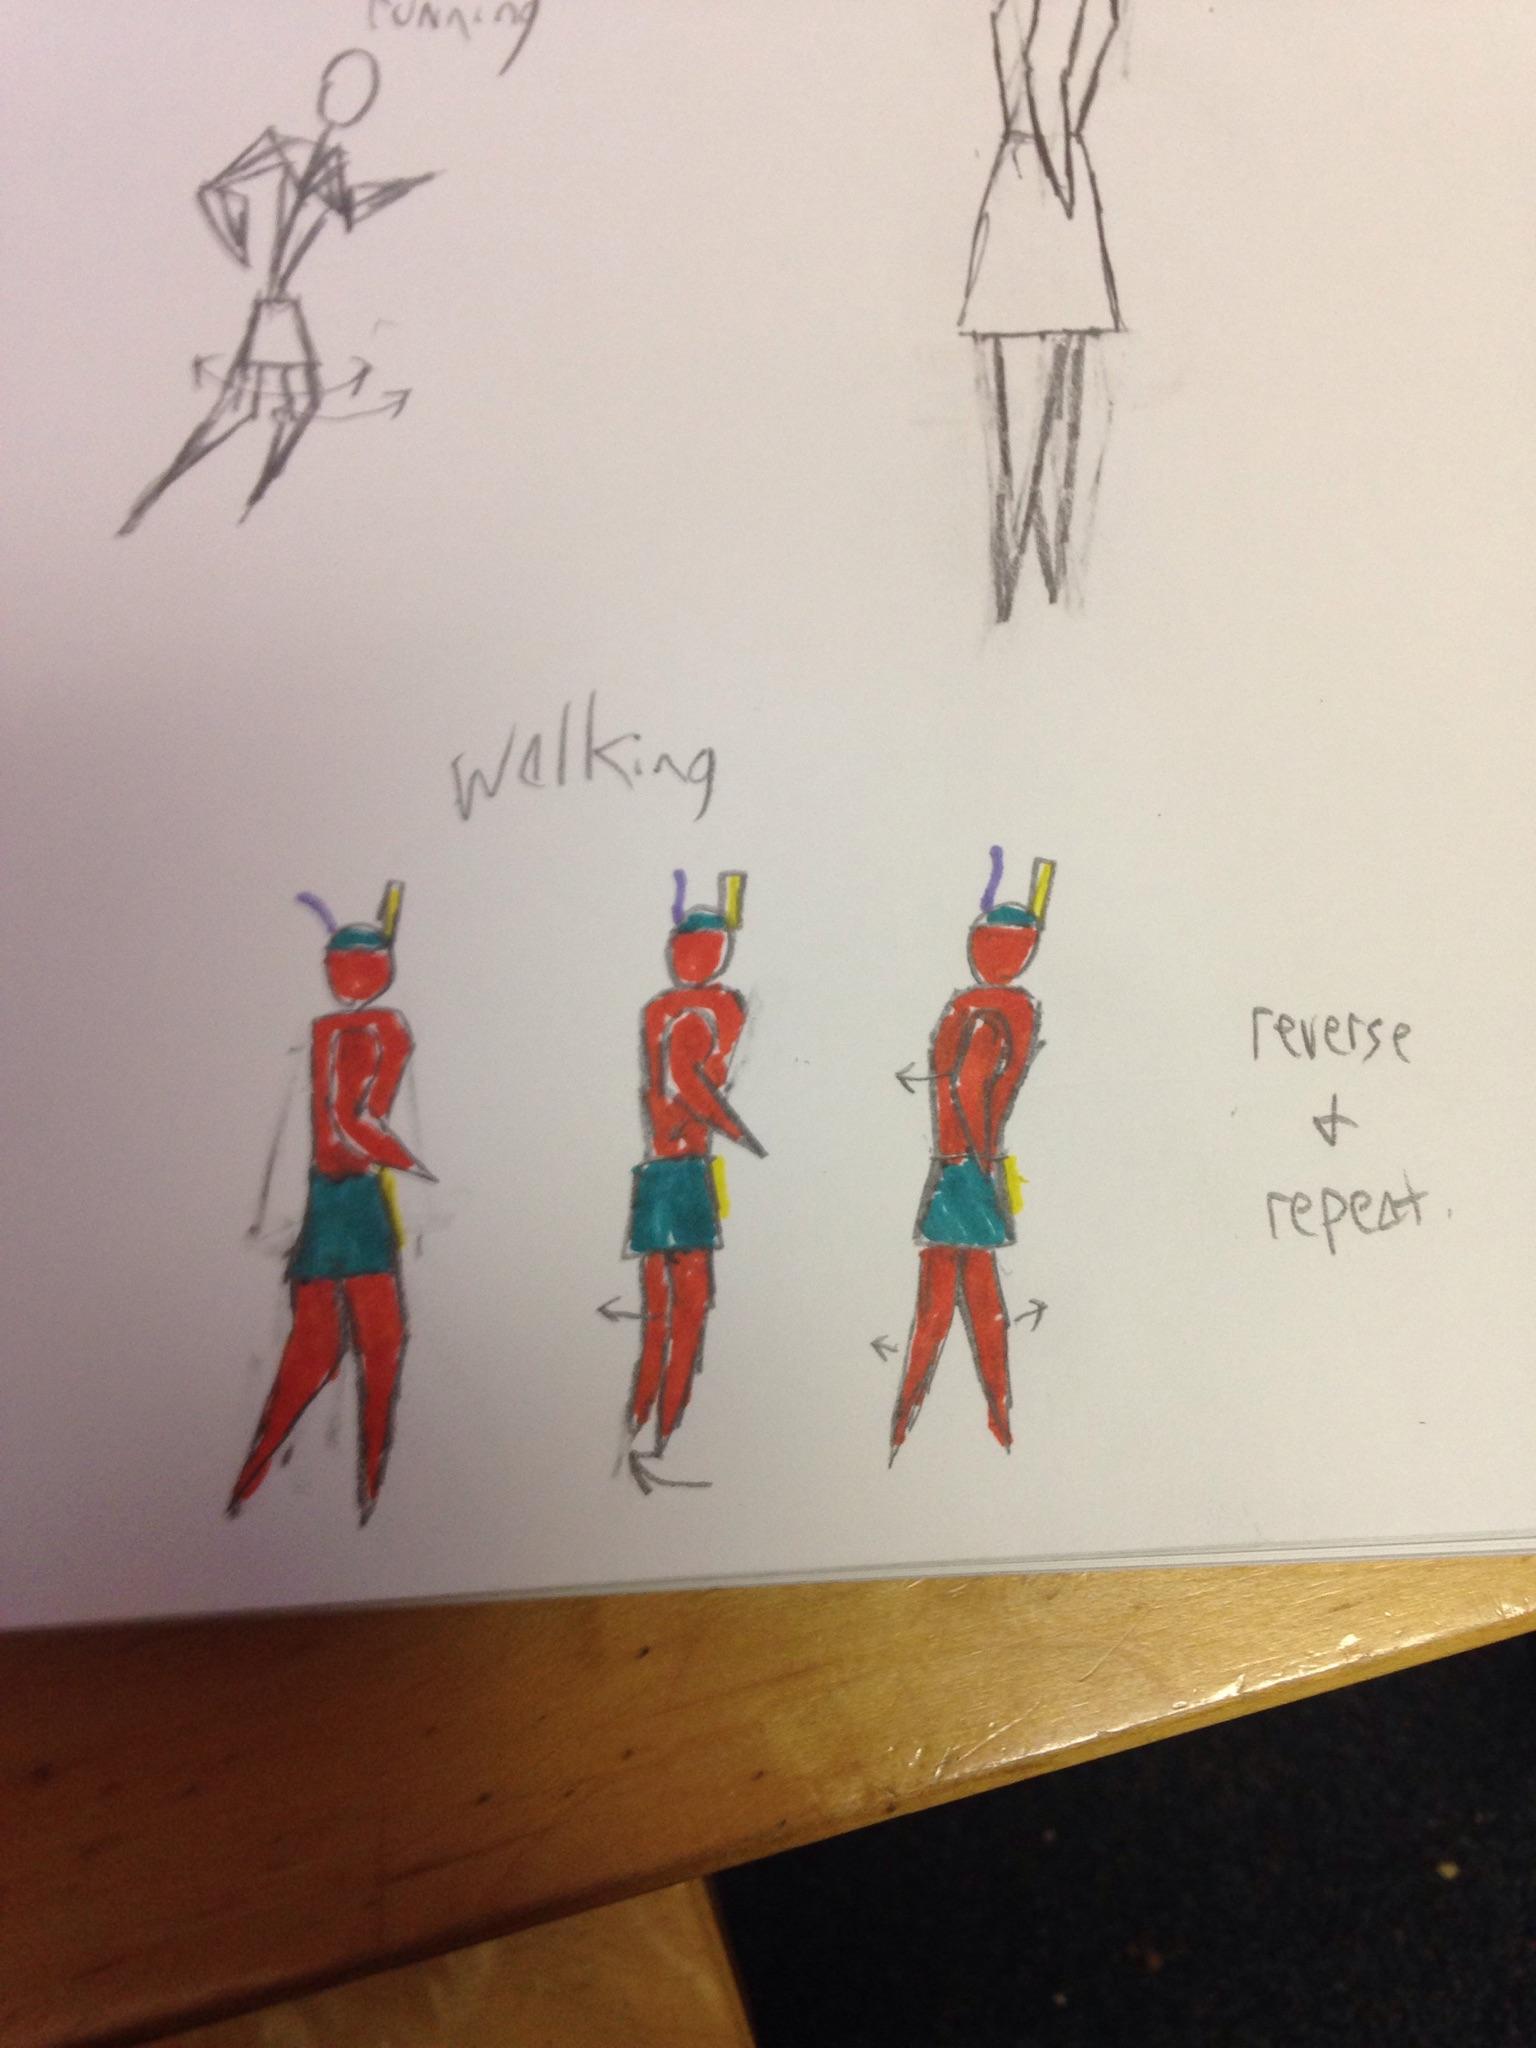 running
walking
reverse
+
repeat.